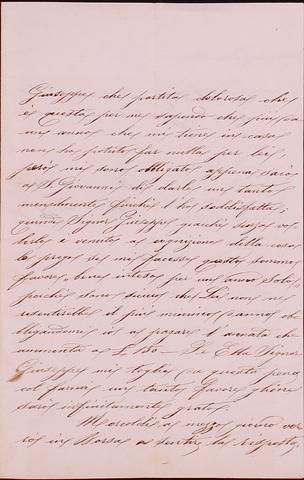 Giuseppe, che partita dolorosa che
è questa per me sapendo che più ca
un anno che mi tiene in casa
non ha potuto far nulla per lei
però mi sono obbligato appena sarò
a S. Giovanni di darle un tanto
mensilmente finché l'ho soddisfatta;
quindi Signor Giuseppe
e venuto a cognizione della cosa
la prego se mi facesse questo sommo
favore, bene inteso per un anno solo,
perché sono sicuro che Lei non ne
risentirebbe il più menimo danno ob
bligandomi io a pagare l'annata che
ammonta a £ 150 — Se Ella Signor
Giuseppe mi toglie da questo
col farmi un tanto favore gliene
sarò infinitamente grato.
Mercoledì a mezzo giorno ver
rò in Borsa a sentire la risposta,